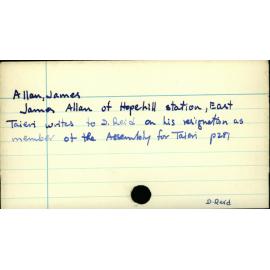 Allan, James
James Allan of Hopehill station, East
Taieri writes to D. Reid on his resignation as
member of the Assembly for Taieri p281
D. Reid